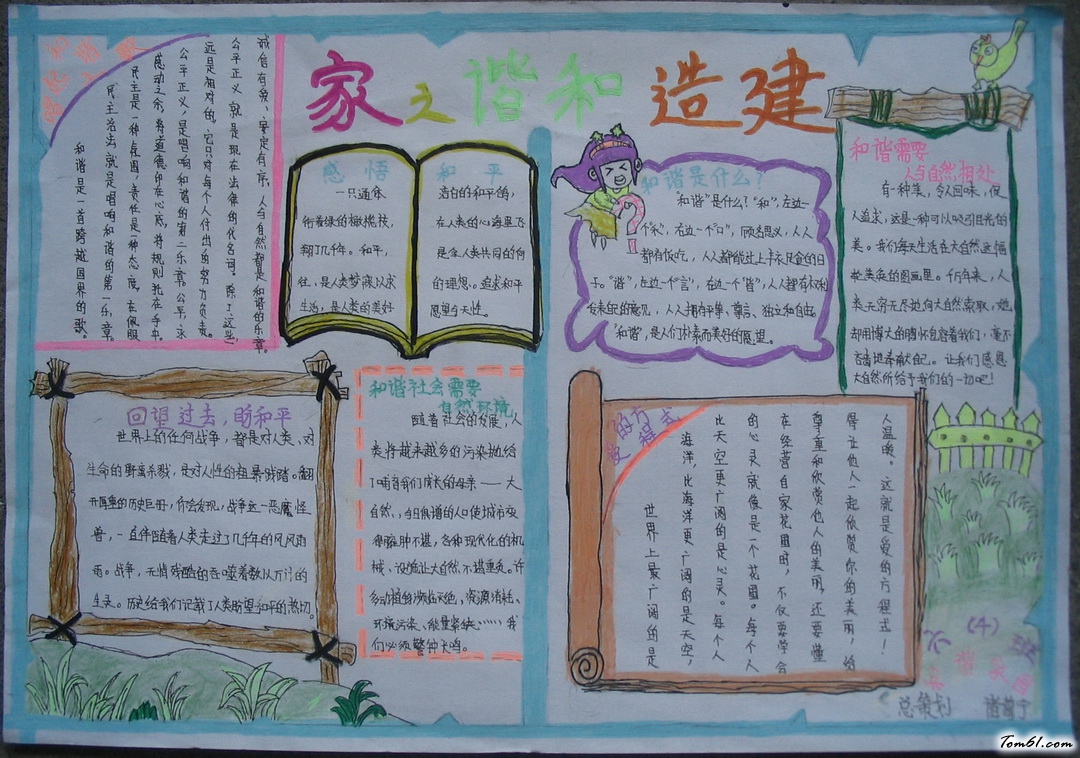 家之谐和造建
诚信有爱、安定有序、人与自然都是和谐的乐章。
公平正义,就是现在法律的代名词。除了这些,
远是相对的,它只对每个人付出的努力负责。
公平正义,是唱响和谐的第二乐章。公平,永
感动之余,将道德印在心底,将规则扎在手中。
民主是一种氛围,责任是一种态度。在佩服
民主法治,就是唱响和谐的第一乐章。
和谐是一首跨越国界的歌。
感悟 和平
一只通体
衔着绿的橄榄枝,
翔了几千年。和平,
往,是人类梦寐以求
生活,是人类的美好
洁白的和平鸽,
在人类的心海里飞
是全人类共同的向
的理想。追求和平
愿望与天性。
和谐是什么?
"和谐"是什么?"和",左边一
个"禾",右边一个"口",顾名思义,人人
都有饭吃,人人都能过上丰衣足食的日
子。"谐",左边一个"言",右边一个"皆",人人都有权利
发表自己的意见,人人拥有平等、尊言、独立和自由。
"和谐",是人们朴素而美好的愿望。
和谐需要
人与自然相处
有一种美,令人回味,使
人追求,这是一种可以吸引目光的
美。我们每天生活在大自然这幅
千百年来,人
类无穷无尽地向大自然索取,她
却用博大的胸怀包容着我们,毫不
吝啬地奉献自己。让我们感恩
大自然所给予我们的一切吧!
回望过去,盼和平
世界上的任何战争,都是对人类、对
生命的野蛮杀戮,是对人性的粗暴践踏。翻
开厚重的历史巨册,你会发现,战争这一恶魔怪
兽,一直伴随着人类走过了几千年的风风雨
雨。战争,无情残酷的吞噬着数以万计的
生灵。历史给我们记载了人类盼望和平的热切。
和谐社会需要
自然环境
随着社会的发展,人
类将越来越多的污染抛给
了哺育我们成长的母亲——大
自然,与日俱增的人口使城市变
得臃肿不堪,各种现代化的机
械、设施让大自然不堪重负。许
多动植物濒临灭绝,资源消耗、
环境污染、能量紧缺……我
们必须警钟长鸣。
爱的方程式
世界上最广阔的是
海洋,比海洋更广阔的是天空,
比天空更广阔的是心灵。每个人
的心灵就像是一个花园。每个人
在经营自家花园时,不仅要学会
尊重和欣赏他人的美丽,还要懂
得让他人一起欣赏你的美丽,给
人温暖。这就是爱的方程式!
六(4)班
总策划
Tom61.com